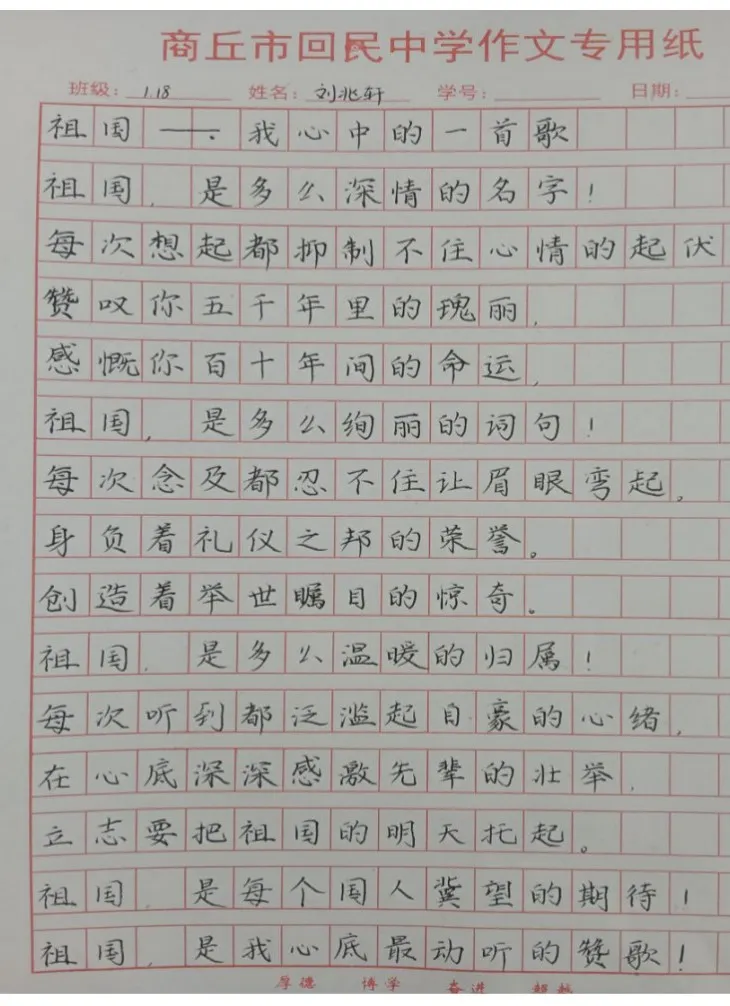 商丘市回民中学作文专用纸
班级：1.18 姓名：刘兆轩 学号： 日期：
祖国——·我心中的一首歌
祖国，是多么深情的名字！
每次想起都抑制不住心情的起伏
赞叹你五千年里的瑰丽，
感慨你百十年间的命运，
祖国，是多么绚丽的词句！
每次念及都忍不住让眉眼弯起。
身负着礼仪之邦的荣誉。
创造着举世瞩目的惊奇。
祖国，是多么温暖的归属！
每次听到都泛滥起自豪的心绪，
在心底深深感激先辈的壮举，
立志要把祖国的明天托起。
祖国，是每个国人冀望的期待！
祖国，是我心底最动听的赞歌！
厚德 博学 奋进 超越